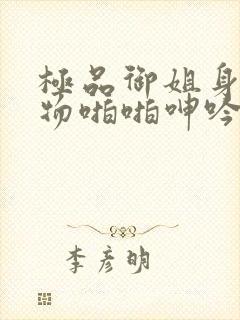 極品御姐身
物啪啪呻吟
李彦明